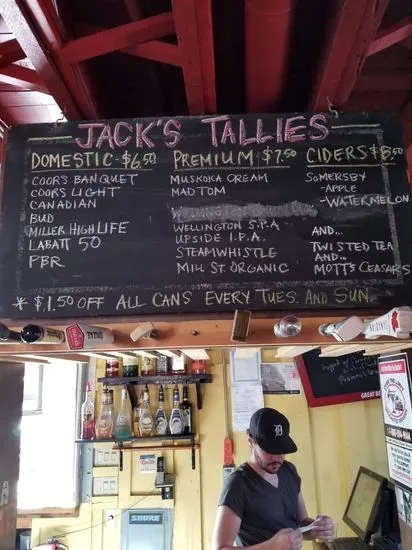 JACK'S TALLIES
DOMESTIC - $6.50
COORS BANQUET
COORS LIGHT
CANADIAN
BUD
MILLER HIGH LIFE
LABATT 50
PBR
PREMIUM - $7.50
MUSKOKA CREAM
MAD TOM
WELLINGTON S.P.A
UPSIDE I.P.A.
STEAMWHISTLE
MILL ST. ORGANIC
CIDERS $8.50
SOMERSBY
-APPLE
-WATERMELON
AND...
TWISTED TEA
AND...
MOTT'S CEASARS
* $1.50 OFF ALL CANS EVERY TUES. AND SUN.
SHURE
D